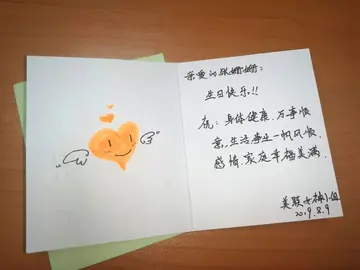 亲爱的张姗姗：
生日快乐!!!
祝：身体健康、万事顺
意，生活事业一帆风顺、
感情、家庭幸福美满.
美联女神小组
2019.8.9